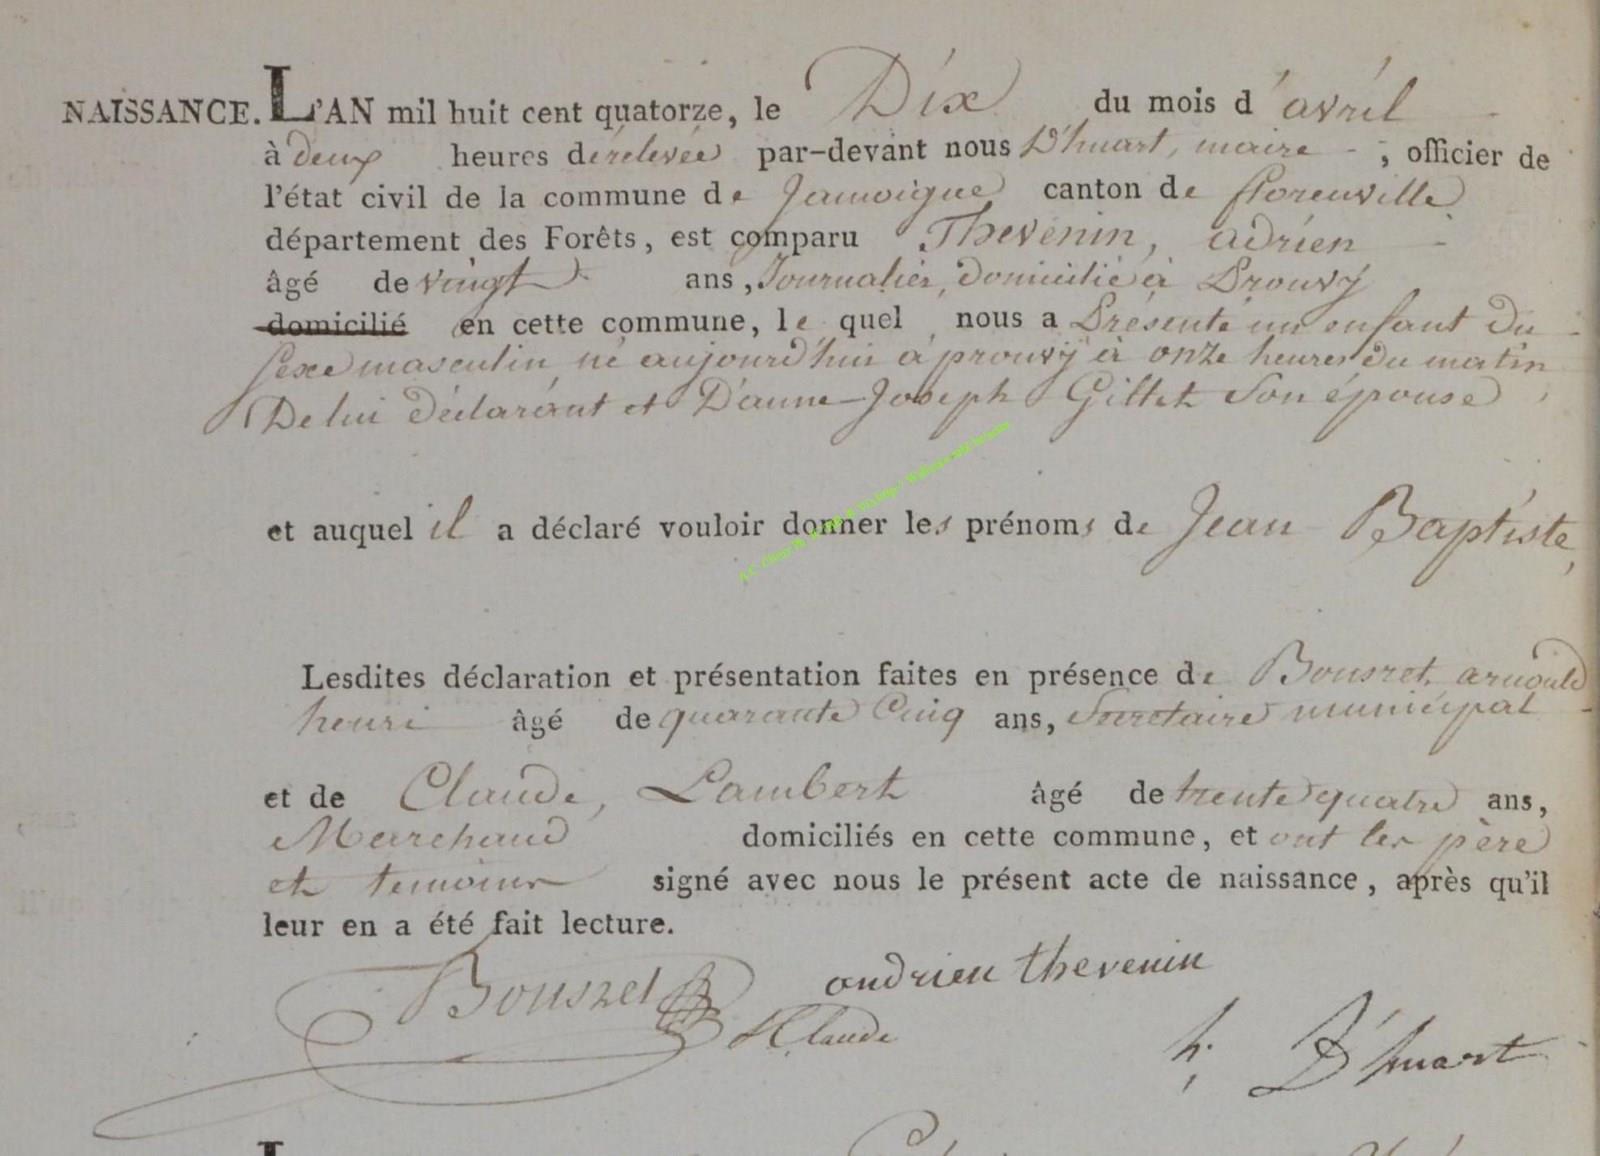 NAISSANCE. L'AN mil huit cent quatorze, le Dix du mois d'avril
à deux heures derelevée par-devant nous D'huart, maire, officier de
l'état civil de la commune de Jamoigne canton de florenville
département des Forêts, est comparu Thevenin, adrien
âgé de vingt ans, Journalier, domicilié à Prouvy
domicilié en cette commune, le quel nous a Présenté un enfant Du
Sexe masculin né aujourd'hui à prouvy à onze heures du matin
De lui déclarant et D'anne-Joseph Gillet Son épouse
et auquel il a déclaré vouloir donner les prénoms de Jean Baptiste,
Lesdites déclaration et présentation faites en présence de Bousret, arnould
henri âgé de quarante Cinq ans, Secretaire municipal
et de Claude, Lambert âgé de trente quatre ans,
Marchand domiciliés en cette commune, et ont les père
et temoins signé avec nous le présent acte de naissance, après qu'il
leur en a été fait lecture.
Bousret andrien thevenin
Claude h. D'huart